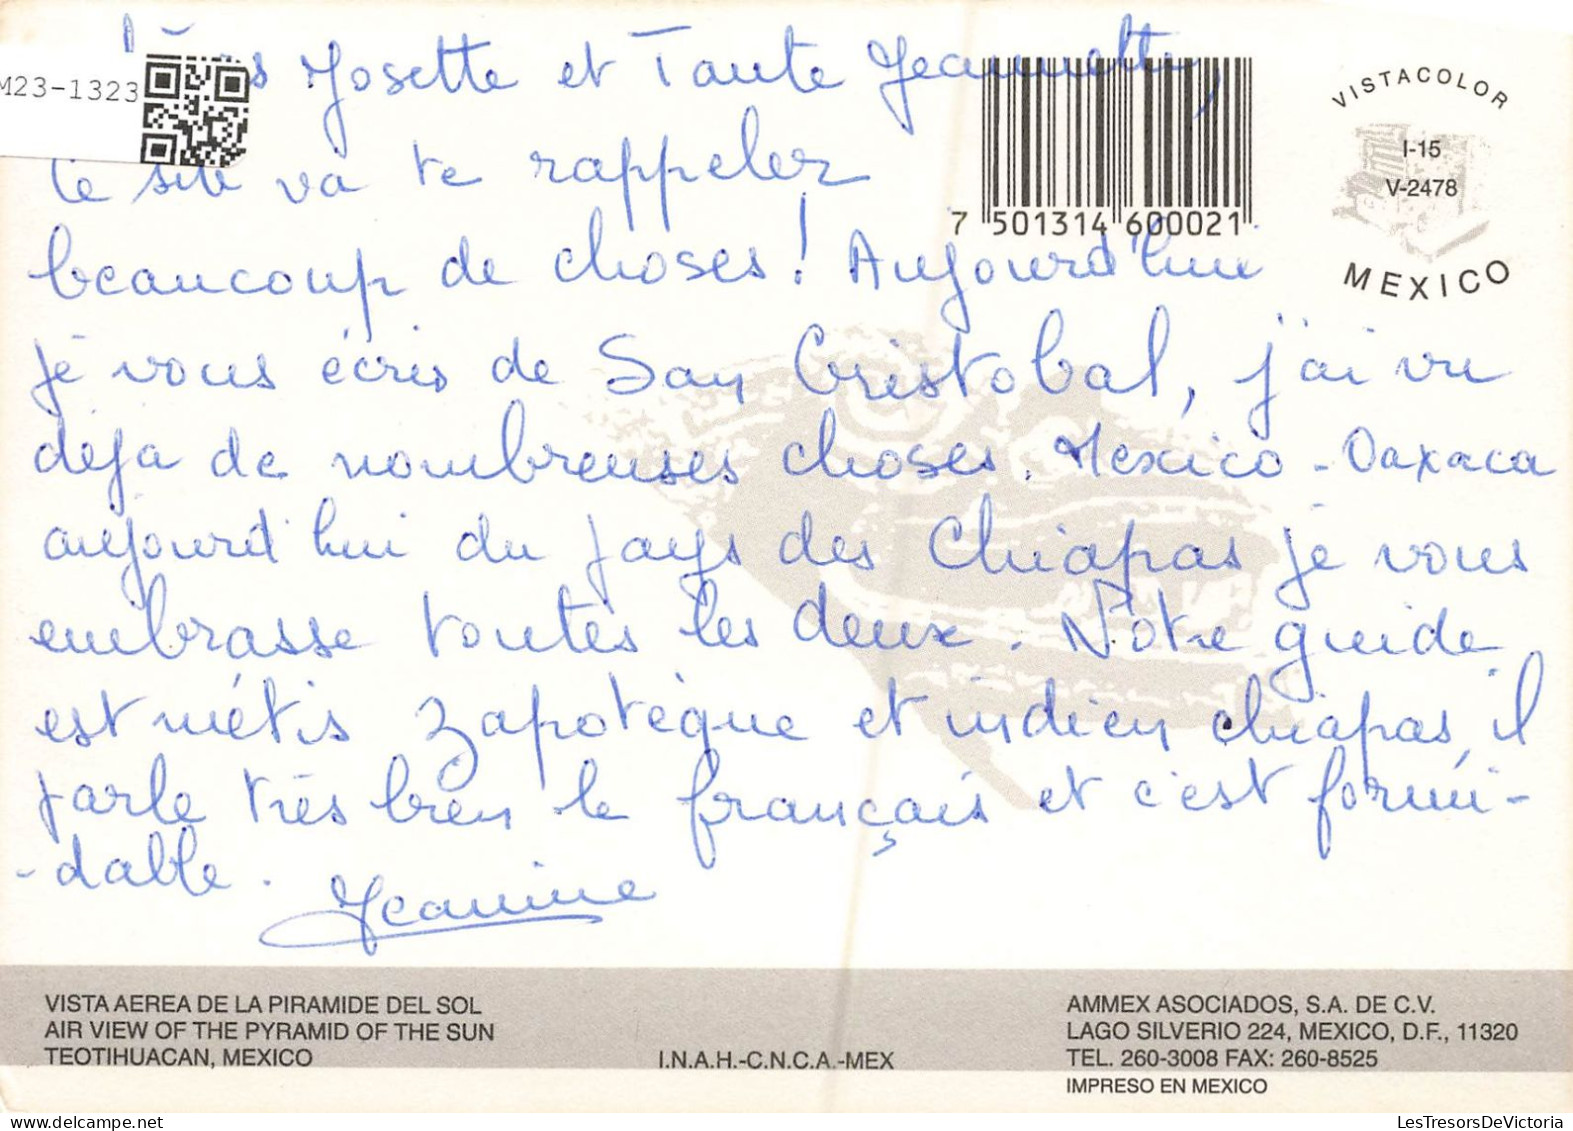 Josette et Tante Jeannette,
M23-1323
ce site va te rappeler
beaucoup de choses! Aujourd'hui
je vous écris de San Cristobal, j'ai vu
déjà de nombreuses choses. Mexico - Oaxaca
aujourd'hui du pays des Chiapas je vous
embrasse toutes les deux. Notre guide
est métis Zapotèque et indien chiapas, il
parle très bien le français et c'est formi-
-dable.
Jeannine
7 501314 600021
VISTACOLOR
I-15
V-2478
MEXICO
VISTA AEREA DE LA PIRAMIDE DEL SOL
AIR VIEW OF THE PYRAMID OF THE SUN
TEOTIHUACAN, MEXICO
I.N.A.H.-C.N.C.A.-MEX
AMMEX ASOCIADOS, S.A. DE C.V.
LAGO SILVERIO 224, MEXICO, D.F., 11320
TEL. 260-3008 FAX: 260-8525
IMPRESO EN MEXICO
LesTresorsDeVictoria